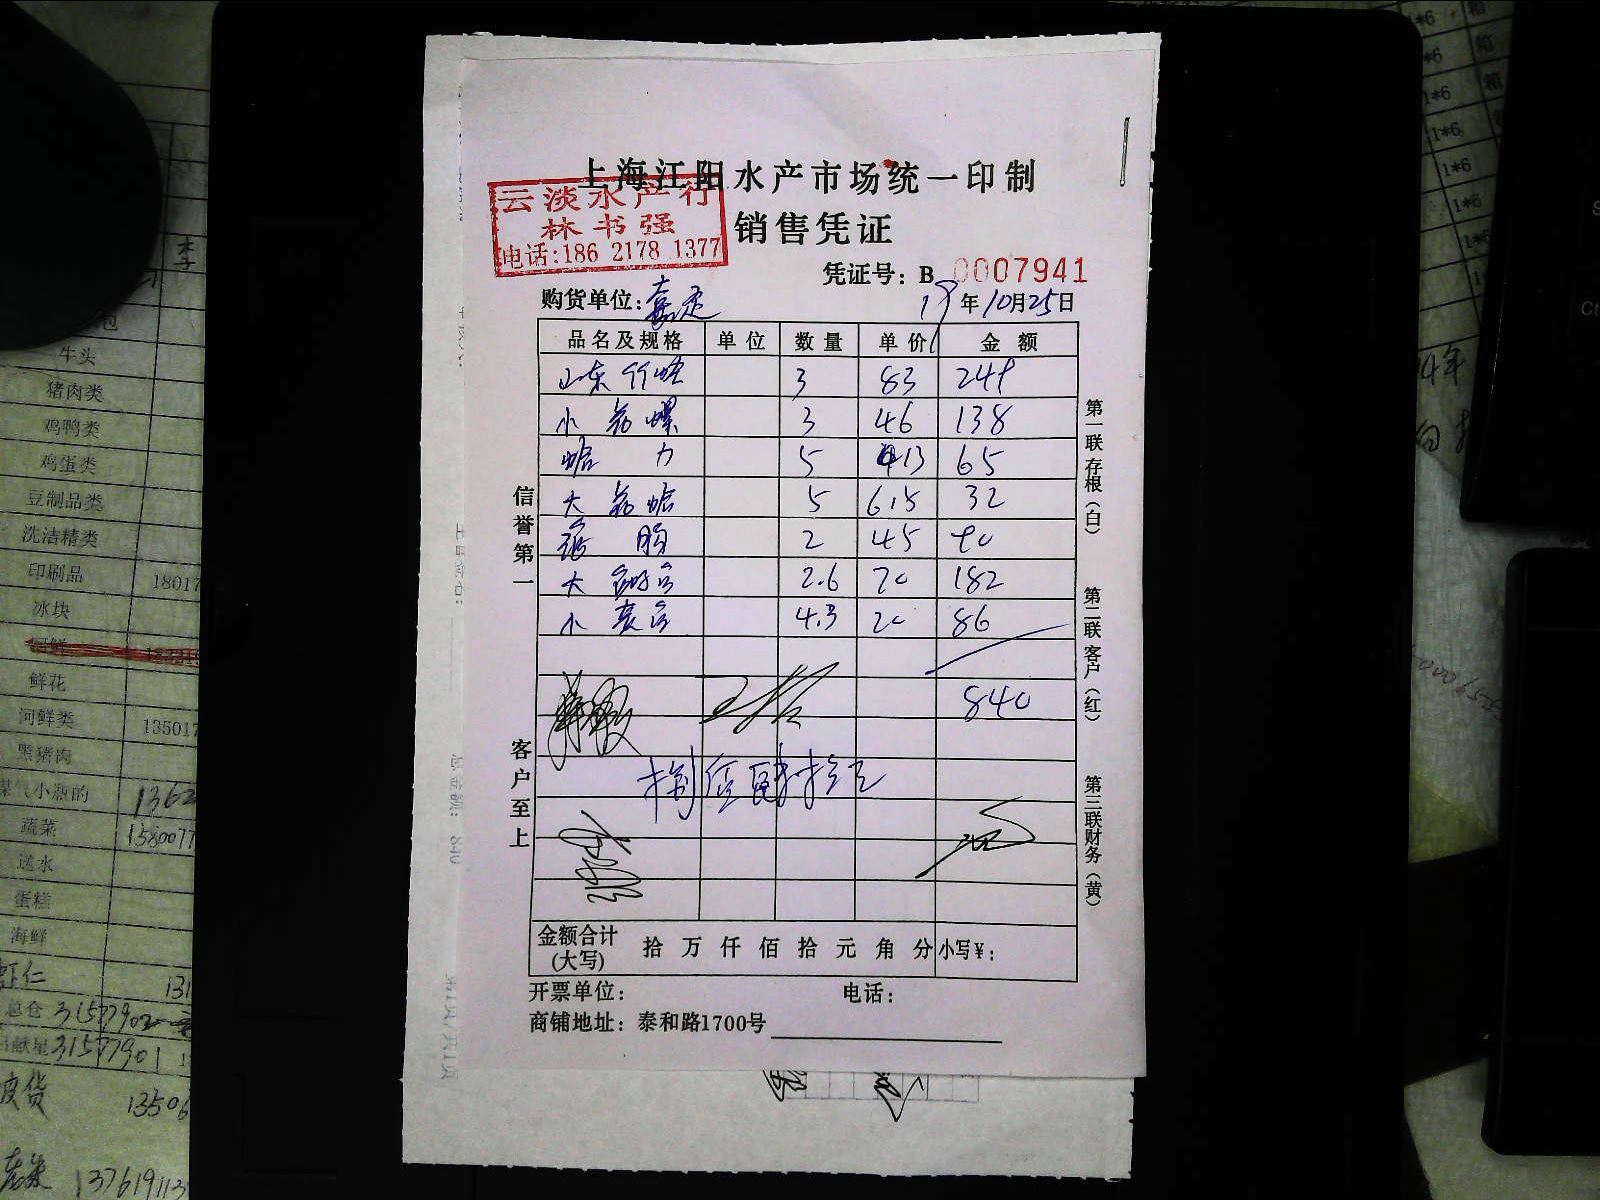 上海江阳水产市场统一印制
云淡水产行
林书强
电话:186 2178 1377
销售凭证
凭证号: B 0007941
购货单位: 嘉定 19年10月25日
品名及规格 单位 数量 单价 金额
山东竹蛏 3 83 249
小花螺 3 46 138
5 13 65
大花蛤 5 6.5 32
2 45 90
大 2.6 70 182
小 4.3 20 86
840
捌佰肆拾元
信誉第一
客户至上
第一联存根(白)
第二联客户(红)
第三联财务(黄)
金额合计(大写) 拾 万 仟 佰 拾 元 角 分 小写¥:
开票单位: 电话:
商铺地址: 泰和路1700号
牛头
猪肉类
鸡鸭类
鸡蛋类
豆制品类
洗洁精类
印刷品 18017
冰块
河鲜
鲜花
河鲜类 135017
黑猪肉
1362
蔬菜 1580077
送水
蛋糕
海鲜
虾仁 131
31577902
31577901
皮货 13506
137619113
1*6
1*6
1*6
1*6
1*6
1*6